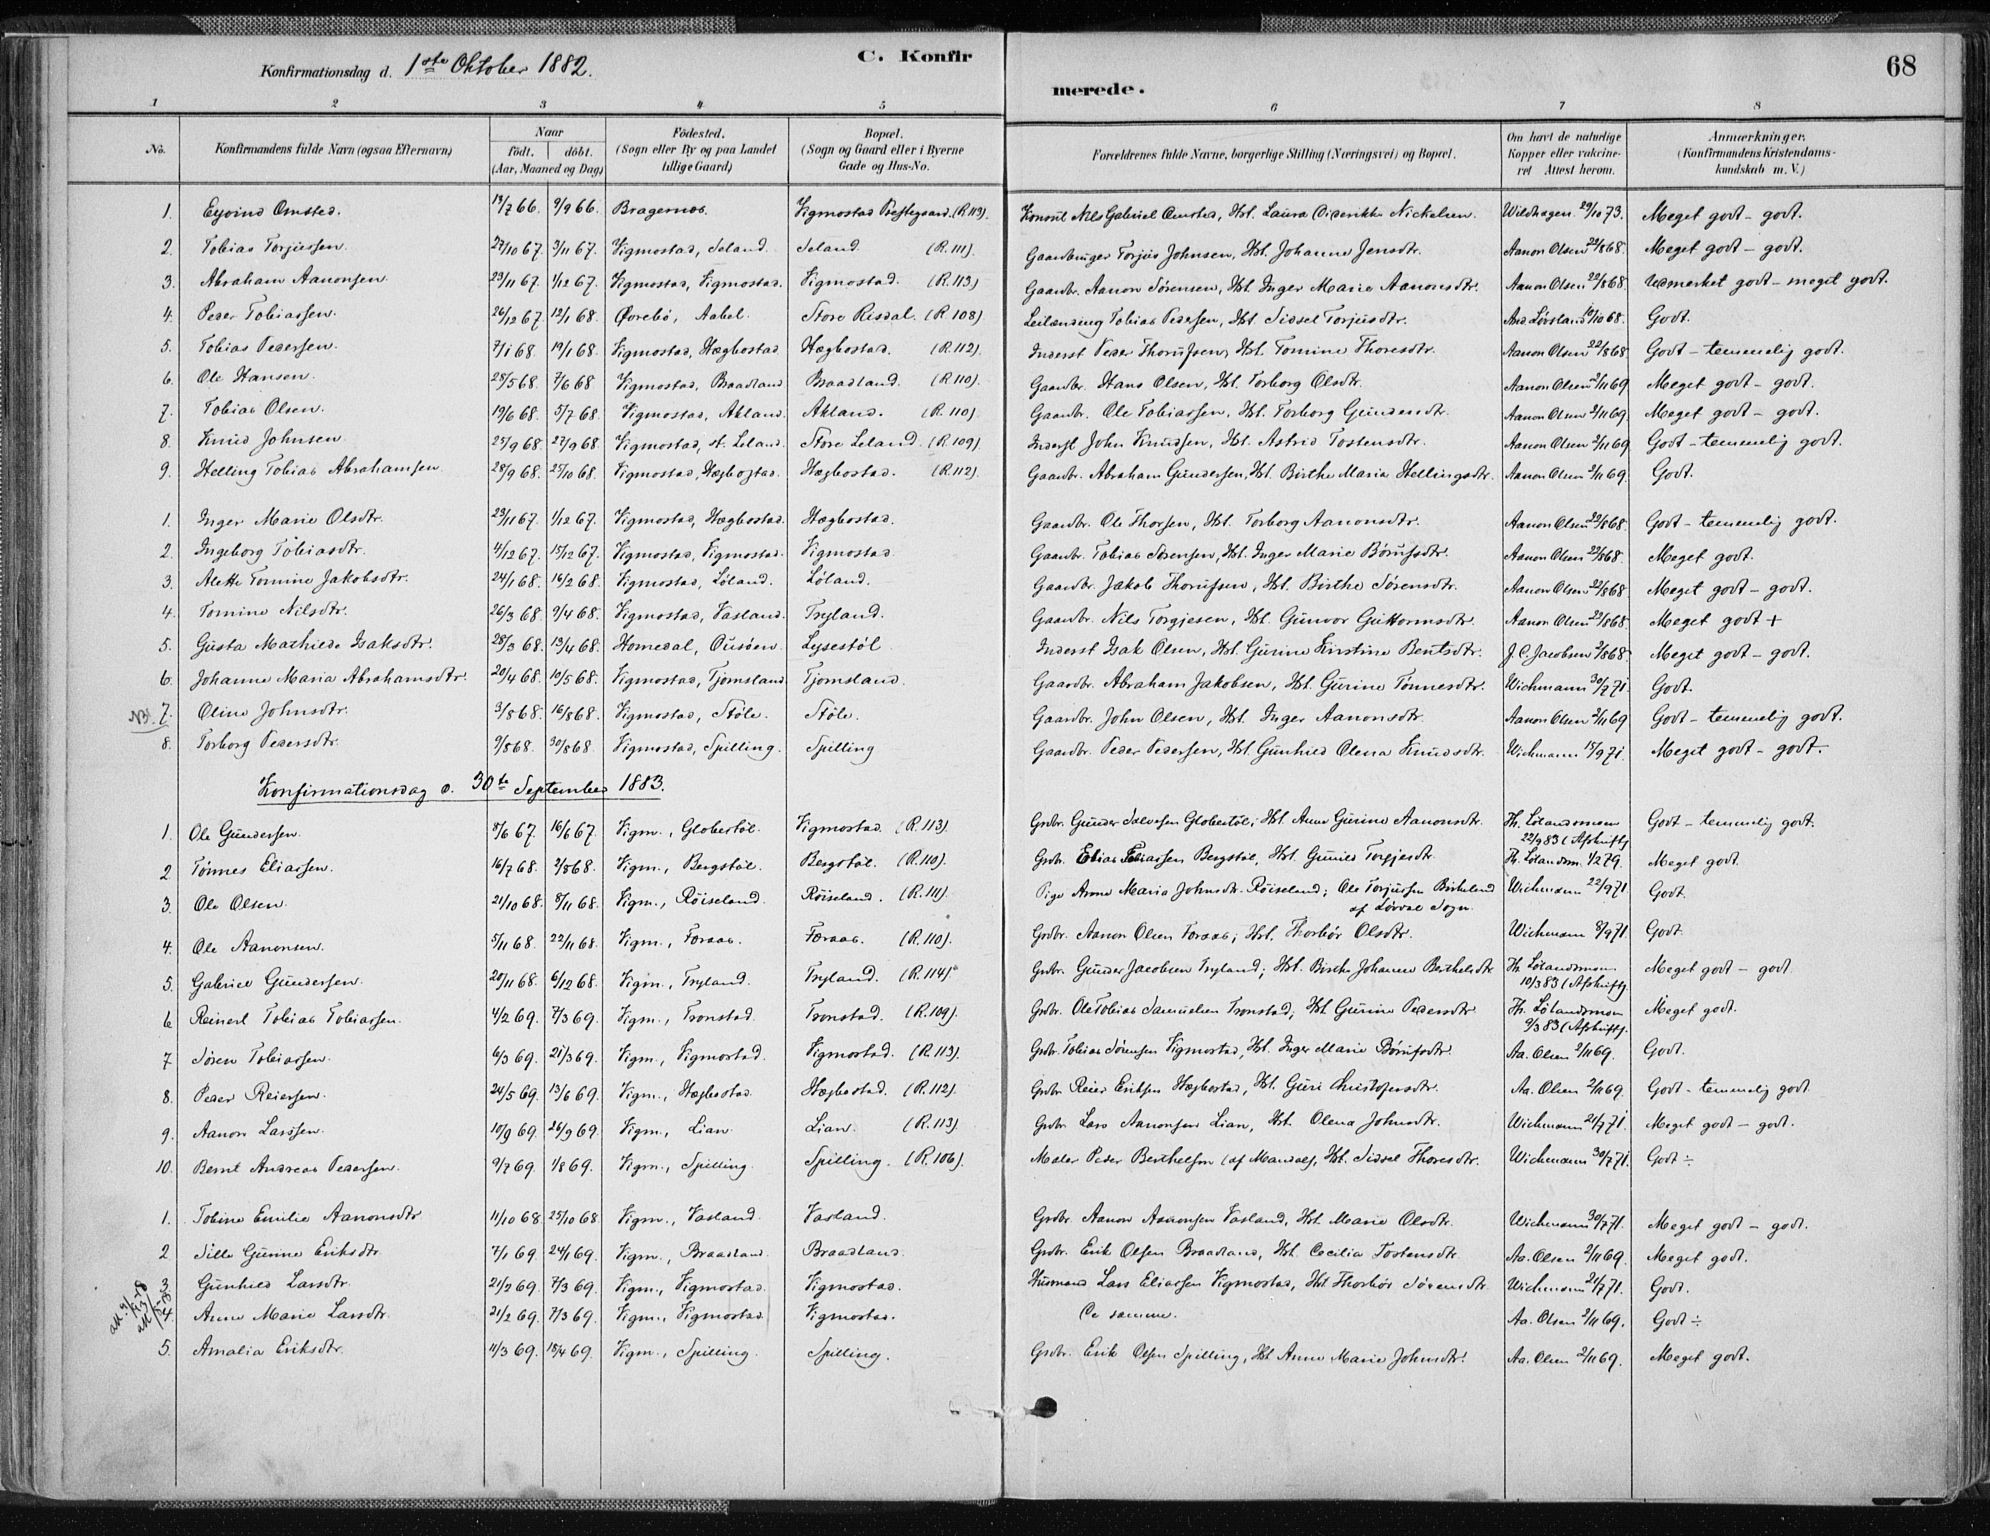 68
C. Konfirmerede.
Konfirmationsdag d. 1ste Oktober 1882.
1 2 3 4 5 6 7 8
No. Konfirmandens fulde Navn (ogsaa Efternavn) Naar födt. döbt. (Aar, Maaned og Dag) Födested. (Sogn eller By og paa Landet tillige Gaard) Bopæl. (Sogn og Gaard eller i Byerne Gade og Hus-No. Forældrenes fulde Navne, borgerlige Stilling (Næringsvei) og Bopæl. Om havt de naturlige Kopper eller vakcineret Attest herom. Anmærkninger. (Konfirmandens Kristendomskundskab m. V.)
1. Eyvind Omsted. 13/7 66. 9/9 66. Bragernæs. Vigmostad Prestegaard. (R. 113). Konsul Nils Gabriel Omsted, Hst. Laura Diderikke Nickelsen. Wildhagen 29/10 73. Meget godt - godt.
2. Tobias Torjussen. 27/10 67. 3/11 67. Vigmostad, Seland. Seland (R. 111). Gaardbruger Torjus Johnsen, Hst. Johanne Jensdtr. Aanon Olsen 22/8 68. Meget godt - godt.
3. Abraham Aanonsen. 23/11 67. 1/12 67. Vigmostad, Vigmostad. Vigmostad. (R. 113) Gaardbr. Aanon Sörensen, Hst. Inger Marie Aanonsdtr. Aanon Olsen 22/8 68. Udmerket godt - meget godt.
4. Peder Tobiassen. 26/12 67. 12/1 68. Øvrebö, Aabel. Store Risdal. (R. 108) Leilænding Tobias Pedersen, Hst. Sidsel Torjusdtr. And. Lövland /10 68. Godt.
5. Tobias Pedersen. 7/1 68. 19/1 68. Vigmostad, Hægbostad. Hægbostad. (R. 112). Inderst Peder Thorufsen, Hst. Tomine Thoresdtr. Aanon Olsen 22/8 68. Godt - temmelig godt.
6. Ole Hansen. 28/5 68. 7/6 68 Vigmostad, Braadland Braadland. (R. 110). Gaardbr. Hans Olsen, Hst. Torborg Olsdtr. Aanon Olsen 2/11 69 Meget godt - godt.
7. Tobias Olsen. 19/6 68. 5/7 68. Vigmostad, Akland. Akland. (R. 110). Gaardbr. Ole Tobiassen, Hst. Torborg Gundersdtr. Aanon Olsen 2/11 69. Meget godt - godt.
8. Knud Johnsen 25/9 68. 27/9 68. Vigmostad, st. Leland. Store Leland. (R. 109). Inderst John Knudsen, Hst. Astrid Tostensdtr. Aanon Olsen 2/11 69 Godt - temmelig godt.
9. Helling Tobias Abrahamsen. 28/9 68. 25/10 68. Vigmostad, Hægbostad. Hægbostad. (R. 112). Gaardbr. Abraham Gundersen, Hst. Birthe Maria Hellingsdtr. Aanon Olsen 2/11 69. Godt.
1. Inger Marie Olsdtr. 23/11 67. 1/12 67. Vigmostad, Hægbostad. Hægbostad. Gaardbr. Ole Thorsen, Hst. Torborg Aanonsdtr. Aanon Olsen 22/8 68. Godt - temmelig godt.
2. Ingeborg Tobiasdtr. 4/12 67. 15/12 67. Vigmostad, Vigmostad. Vigmostad. Gaardbr. Tobias Sörensen, Hst. Inger Marie Børufsdtr. Aanon Olsen 22/8 68. Meget godt.
3. Alette Tomine Jakobsdtr. 24/1 68. 16/2 68. Vigmostad, Løland. Løland. Gaardbr. Jakob Thorufsen, Hst. Birthe Sörensdtr. Aanon Olsen 22/8 68. Meget godt - godt.
4. Tomine Nilsdtr. 26/3 68. 9/4 68. Vigmostad, Vasland. Tryland. Gaardbr. Nils Torgjesen, Hst. Gunvor Guttormsdtr. Aanon Olsen 23/8 68. Meget godt +
5. Gusta Mathilde Isaksdtr. 28/3 68. 13/4 68. Homedal, Lysestöl Inderst Isak Olsen, Hst. Gurine Kirstine Bentsdtr. J. C. Jacobsen /8 68. Meget godt - godt.
6. Johanne Maria Abrahamsdtr. 20/4 68. 10/5 68. Vigmostad, Tjomsland Tjomsland. Gaardbr. Abraham Jakobsen, Hst. Gurine Tönnesdtr. Wichmann 30/7 71. Godt.
NB. 7. Oline Johnsdtr. 3/8 68. 16/8 68. Vigmostad, Støle. Støle. Gaardbr. John Olsen, Hst. Inger Aanonsdtr. Aanon Olsen 2/11 69 Godt - temmelig godt.
8. Torborg Pedersdtr. 9/8 68. 30/8 68. Vigmostad, Spilling. Spilling Gaardbr. Peder Pedersen, Hst. Gunhild Olena Knudsdtr. Wichmann 15/9 71. Meget godt - godt.
Konfirmationsdag d. 30te September 1883.
1. Ole Gundersen. 8/6 67. 16/6 67. Vigm., Globestöl. Vigmostad. (R. 113) Grdbr. Gunder Salvesen Globestöl; Hst. Anne Gurine Aanonsdtr. Th. Lölandsmoen 22/9 83 (Afskrift) Godt - temmelig godt.
2. Tönnes Eliassen. 16/7 68. 2/8 68. Vigm., Bergstöl. Bergstöl. (R. 110). Grdbr. Elias Bergstöl, Hst. Gunild Torgjesdtr. Th. Lölandsm. 1/2 79. Meget godt.
3. Ole Olsen. 21/10 68. 8/11 68. Vigm., Röiseland. Röiseland. (R. 111). Pige Anne Maria Johnsdtr. Röiseland; Ole Torjussen Birkeland af Lövdal Sogn. Wichmann 22/9 71. Godt.
4. Ole Aanonsen. 5/11 68. 22/11 68. Vigm., Foraas. Foraas. (R. 110). Grdbr. Aanon Olsen Foraas; Hst. Thorbör Olsdtr. Wichmann 8/9 71. Godt.
5. Gabriel Gundersen. 20/11 68. 6/12 68. Vigm., Tryland. Tryland. (R. 114). Grdbr. Gunder Jacobsen Tryland; Hst. Birthe Johanne Berthelsdtr. Th. Lölandsmoen 10/3 83 (Afskrift). Meget godt - godt
6. Reinert Tobias Tobiassen. 4/2 69. 7/3 69. Vigm., Tronstad. Tronstad. (R. 109). Grdbr. Ole Tobias Samuelsen Tronstad; Hst. Gurine Pedersdtr. Th. Lölandsmoen 9/3 83 (Afskrift). Meget godt.
7. Sören Tobiassen. 6/3 69. 21/3 69. Vigm., Vigmostad. Vigmostad. (R. 113). Grdbr. Tobias Sörensen Vigmostad, Hst. Inger Marie Børufsdtr. Aa. Olsen 2/11 69. Godt.
8. Peder Reiersen. 24/5 69. 13/6 69. Vigm., Hægbostad. Hægbostad. (R. 112). Grdbr. Reier Eriksen Hægbostad, Hst. Guri Christofersdtr. Aa. Olsen 2/11 69 Godt - temmelig godt
9. Aanon Larsen. 10/9 69. 26/9 69. Vigm., Lian. Lian. (R. 113). Grdbr. Lars Aanonsen Lian, Hst. Olena Johnsdtr. Wichmann 21/7 71. Meget godt - godt.
10. Bernt Andreas Pedersen. 9/7 69. 1/8 69. Vigm., Spilling. Spilling. (R. 106). Maler Peder Berthelsen (af Mandal), Hst. Sidsel Thoresdtr. Wichmann 30/7 71. Godt ÷
1. Tobine Emilie Aanonsdtr. 11/10 68 25/10 68 Vigm., Vasland. Vasland. Grdbr. Aanon Aanonsen Vasland, Hst. Marie Olsdtr. Wichmann 30/7 71. Meget godt - godt.
2 Sille Gurine Eriksdtr. 7/1 69. 24/1 69. Vigm., Braadland. Braadland. Grdbr. Erik Olsen Braadland, Hst. Cecilia Tostensdtr. Aa. Olsen 2/11 69. Meget godt.
3 Gunhild Larsdtr. 21/2 69. 7/3 69. Vigm., Vigmostad. Vigmostad. Husmand Lars Eliassen Vigmostad, Hst. Thorbör Sörensdtr. Wichmann 21/7 71. Godt.
4. Anne Marie Larsdtr. 21/2 69. 7/3 69. Vigm., Vigmostad. Vigmostad. De samme. Aa. Olsen 2/11 69. Godt ÷
5. Amalia Eriksdtr. 11/3 69. 18/4 69. Vigm., Spilling. Spilling. Grdbr. Erik Olsen Spilling, Hst. Anne Marie Johnsdtr. Aa. Olsen 2/11 69. Meget godt.